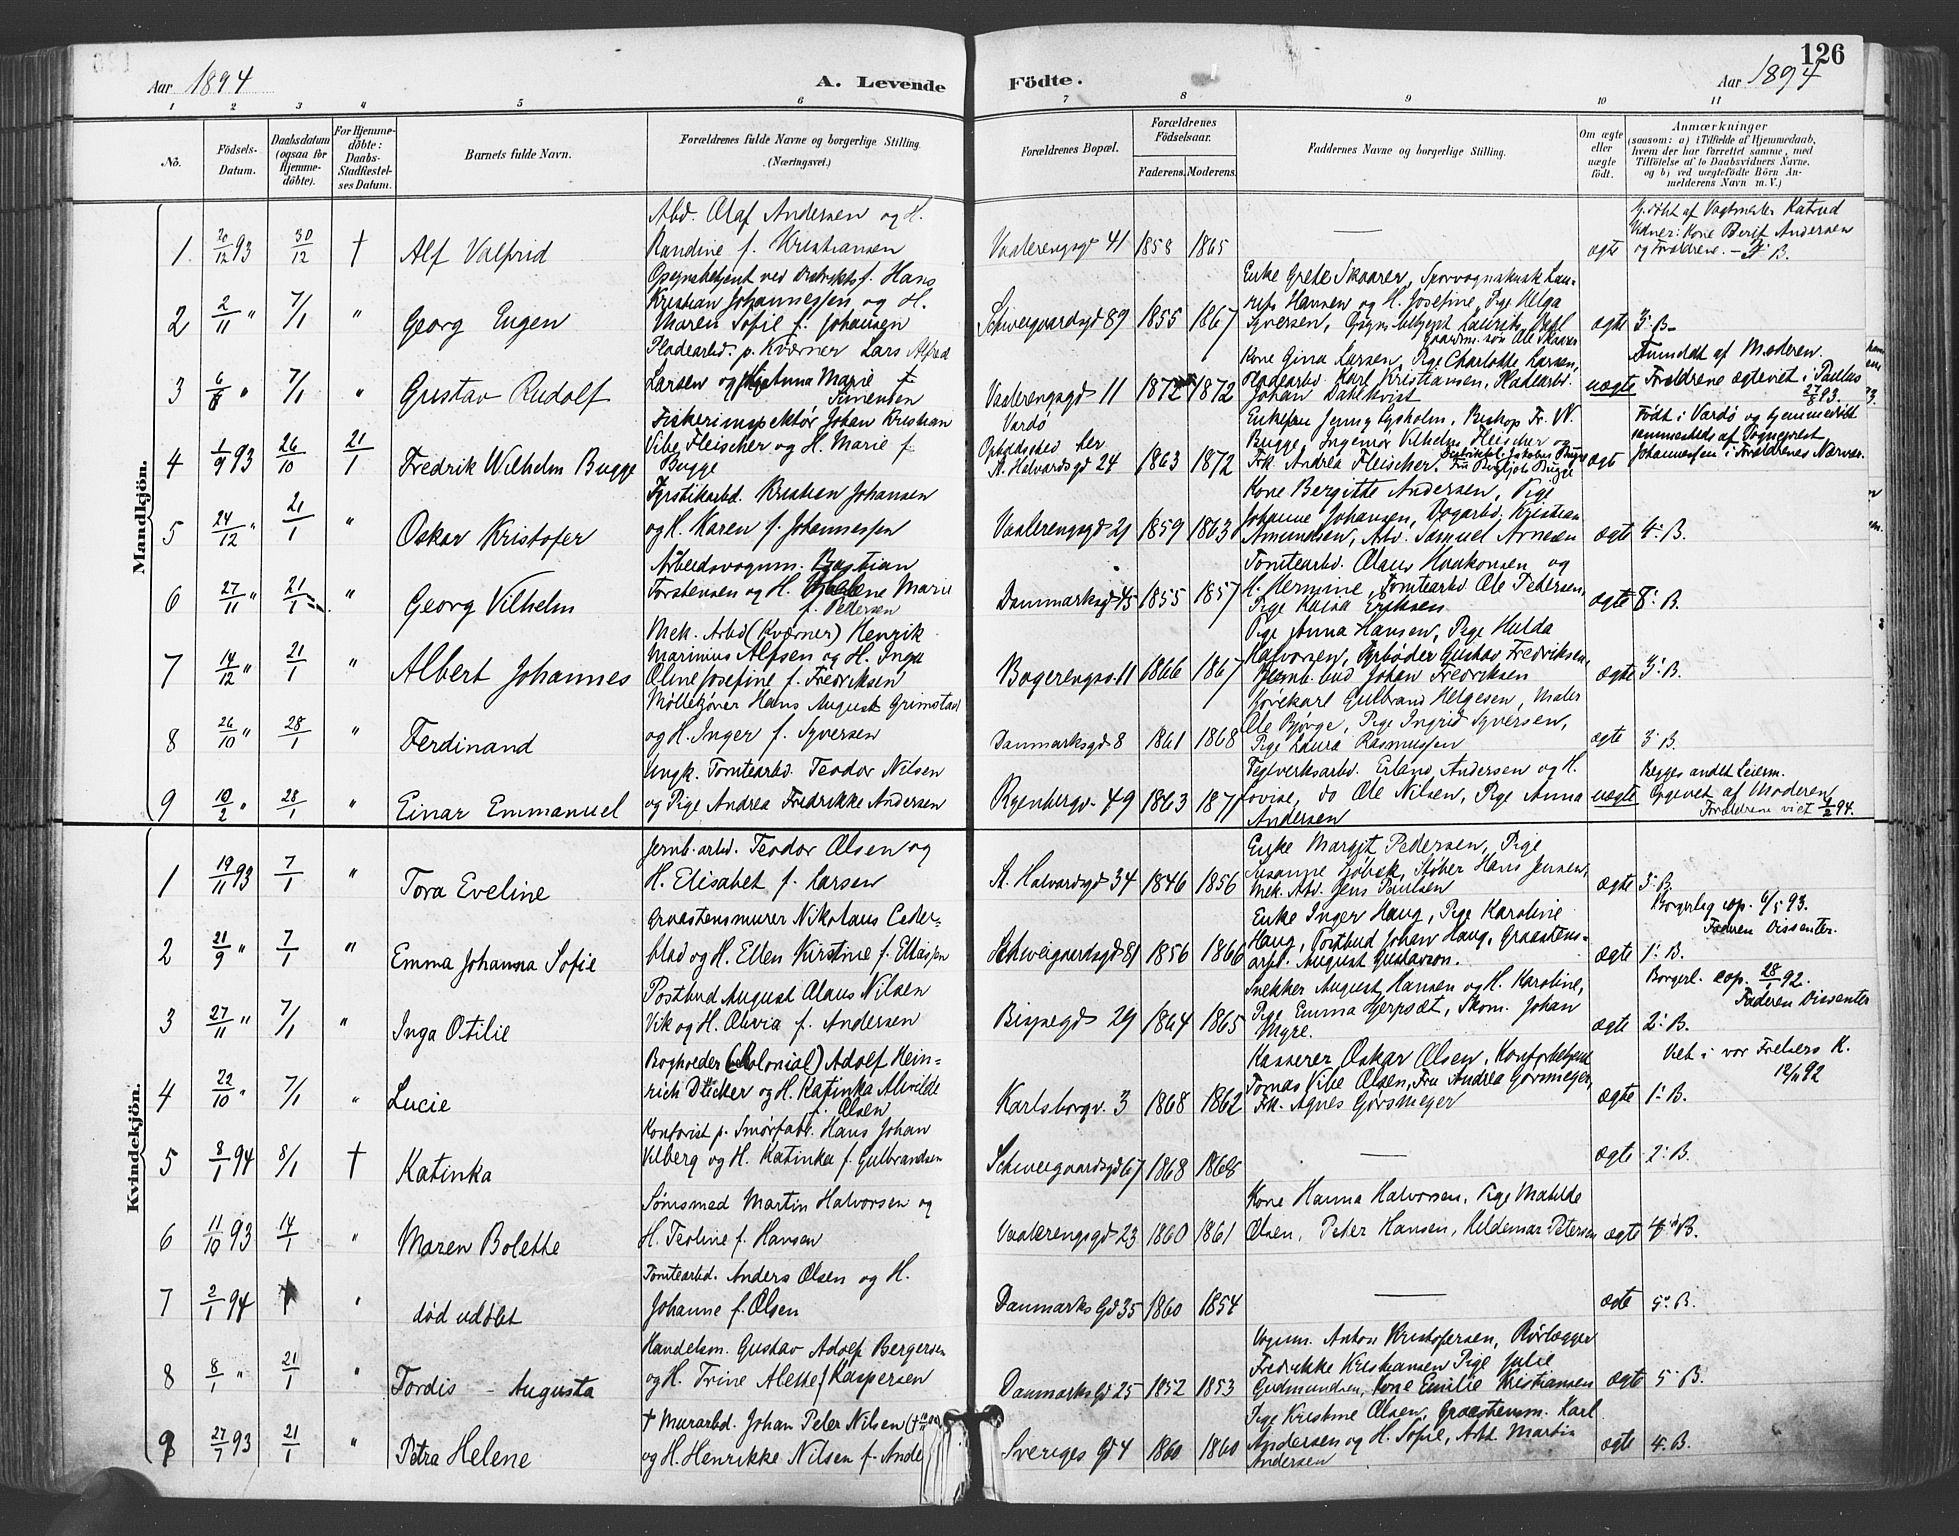 126
Aar 1894
A. Levende
Födte.
Aar 1894
1 2 3 " 5 6 7 8 9 10 11
No.
Födsels-
Datum.
Daabsdatum
(ogsaa for
Hjemme-
döbte).
For Hjemme-
döbte:
Daabs-
Stadfæstel-
ses Datum.
Barnets fulde Navn.
Forældrenes fulde Navne og borgerlige Stilling.
(Næringsvei.)
Forældrenes Bopæl.
Forældrenes
Födselsaar.
Faderens. Moderens.
Faddernes Navne og borgerlige Stilling.
Om ægte
eller
uægte
født.
Anmærkninger
(saasom: a) i Tilfælde af Hjemmedaab,
hvem der har forrettet samme, med
Tilföielse af to Daabsvidners Navne.
og b) ved uægtefödte Börn An-
melderens Navn m. V.)
Mandkjön.
1. 20/12 93 30/12 † Alf Valfrid
Abd. Olaf Andersen og H.
Randine f. Kristiansen
Vaalerengsgd 41 1858 1865
ægte
Vidner: Kone Berit Andersen
og Forældrene. - B.
2 2/11 " 7/1 " Georg Eugen
Opsynsbetjent ved f. Hans
Kristian Johannessen og H.
Maren Sofie f. Johansen
Schweigaardsgd 89 1855 1867
Enke Grete Skaarer, Sporvognskusk Lau-
rits Hansen og H. Josefine, Pige Helga
Syversen, Opsyns betjent Laurits Dahl
Ole Skaarer
ægte 3: B.
3 6/8 " 7/1 " Gustav Rudolf
Pladearbd. p. Kværner Lars Alfred
Larsen og Anna Marie
Simensen
Vaalerengsgd 11 1872 1872
Kone Gina Larsen, Pige Charlotte Larsen,
Pladearbd. Karl Kristiansen, Pladearbd.
Johan Dahlkvist
uægte
af Moderen.
Forældrene ægteviet i Paulus
27/8 93.
4 1/9 93 26/10 21/1 Fredrik Wilhelm Bugge
Fiskeriinspektør Johan Kristian
Vibe Fleischer og H. Marie f.
Bugge
Vardö
Opholdssted her
St. Halvardsgd 24 1863 1872
Enkefru Jenny Lysholm, Biskop Fr. W.
Bugge, Ingeniør Vilhelm Fleischer og
Frk. Andrea Fleischer.
ægt
Födt i Vardö og hjemmedöbt
sammesteds af Sogneprest
Johannessen i Forældrenes Nærvær.
5 24/12 " 21/1 " Oskar Kristofer
Fyrstikarbd. Kristian Johansen
og H. Karen f. Johannessen
Vaalerengsgd 29 1859 1863
Kone Bergitte Andersen, Pige
Johanne Johansen, Kristian
Amundsen, Arb. Samuel Arnesen
ægte 4: B.
6 27/11 " 21/1 " Georg Vilhelm
Arbeidsvognm. Bastian
Torstensen og H. Marie
f. Pedersen
Danmarksgd 45 1855 1857
Tomtearbd. Olaus Haakonsen og
H. Hermine, Tomtearbd Ole Pedersen,
Pige Kaisa Eriksen
ægte 8: B.
7 14/12 " 21/1 " Albert Johannes
Mek. Arbd (Kværner) Henrik
Marinius Alfsen og H. Inga
Oline Josefine f. Fredriksen
Bogerengsv. 11 1866 1867
Pige Anna Hansen, Pige Hulda
Halvorsen, Fyrböder Gustav Fredriksen,
Jernb. bud Johan Fredriksen
ægte 3: B.
8 26/10 " 28/1 " Ferdinand
Möllekjörer Hans August Grimstad
og H. Inger f. Syversen
Danmarksgd 8 1861 1868
Kjörekarl Gulbrand Helgesen, Maler
Ole Bjövge, Pige Ingrid Syversen,
Pige Laura Rasmussen
ægte 3: B.
9 10/2 " 28/1 " Einar Emmanuel
Ungk. Tomtearbd. Teodor Nilsen
og Pige Andrea Fredrikke Andersen
Ryenbergv. 49 1863 1871
Teglverksarbd. Erland Andersen og H.
Lovise, do Ole Nilsen, Pige Anna
Andersen
uægte
Begges andet Leierm.
Opgivet af Moderen
Forældrene viet 4/2 94.
Kvindekjön.
1 19/11 93 7/1 " Tora Eveline
Jernb. arbd. Teodor Olsen og
H. Elisabet f. Larsen
St. Halvardsgd 34 1846 1856
Enke Margit Pedersen, Pige
Susanne Sjöbek, Stöber Hans Jensen,
Mek. Arb. Jens Paulsen
ægte 3: B.
2 21/9 " 7/1 " Emma Johanna Sofie
Graastensmurer Nikolaus Ceder-
blad og H. Ellen Kirstine f. Eliassen
Schweigaardsgd 81 1856 1866
Enke Inger Haug, Pige Karoline
Haug, Postbud Johan Haug, Graastens-
arbd. August Gustavson.
ægte 1: B.
Borgerlig cop. 6/5 93.
Faderen Dissenter.
3 27/11 " 7/1 " Inga Otilie
Postbud August Olaus Nilsen
Vik og H. Olivia f. Andersen
Bispegd 29 1864 1865
Snekker August Hansen og H. Karoline,
Pige Emma Hjerpsæt, Skom. Johan
Myre.
ægte 2: B.
Borgerl. cop. 28/1 92.
Faderen Dissenter
4 22/10 " 7/1 " Lucie
Bogholder (Kolonial) Adolf Hein-
rich Dücker og H. Katinka Alvilde
f. Olsen
Karlsborgv. 3 1868 1862
Kasserer Oskar Olsen, Kontorbetjent
Tomas Vibe Olsen, Fru Andrea Görsmeyer,
Frk. Agnes Görsmeyer
ægte 1: B.
Viet i vor Frelsers K.
12/11 92
5 8/1 94 8/1 † Katinka
Kontorist p. Smörfabr. Hans Johan
Vilberg og H. Katinka f. Gulbrandsen
Schweigaardsgd 67 1868 1868
ægte 2: B.
6 11/10 93 14/1 " Maren Bolette
Sömsmed Martin Halvorsen og
H. Teoline f. Hansen
Vaalerengsgd 23 1860 1861
Kone Hanna Halvorsen, Pige Matilde
Olsen, Peter Hansen, Hildemar Petersen
ægte 4: B.
7 2/1 94 † " död udöbt
Tomtearbd. Anders Olsen og H.
Johanne f. Olsen
Danmarks Gd 35 1860 1854
ægte 5: B.
8 8/1 " 21/1 " Tordis - Augusta
Handelsm. Gustav Adolf Bergersen
og H. Trine Alette f Kaspersen
Danmarks Gd 25 1852 1853
Vognm. Anton Kristofersen, Rörlægger
Fredrikke Kristiansen Pige Julie
Gudmundsen, Kone Emilie Kristiansen
ægte 5: B.
9 27/7 93 21/1 " Petra Helene
† Murarbd. Johan Peter Nilsen
og H. Henrikke Nilsen f. Ande
Sveriges Gd 4 1860 1860
Pige Kristine Olsen, Graastensm. Karl
Andersen og H. Sofie, Arbd. Martin
Andersen
ægte 4: B.